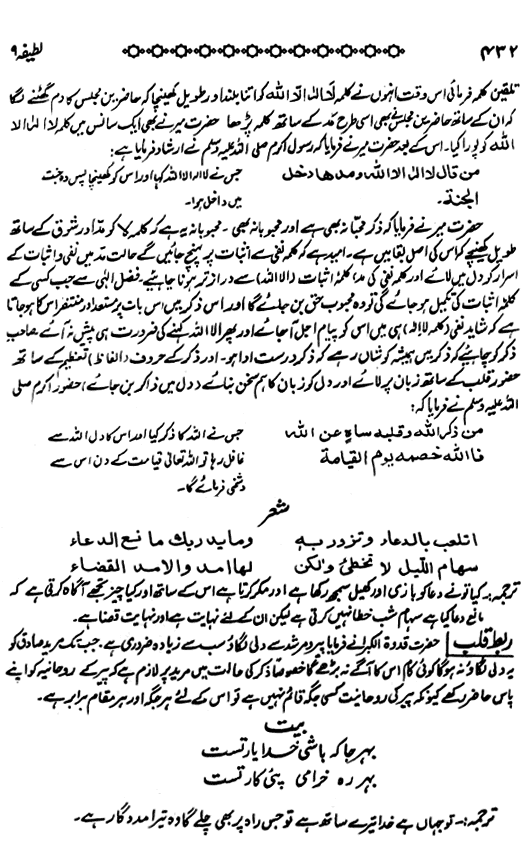 ۴۳۲ لطیفہ ۹
تلقین کلمہ فرمائی اس وقت انہوں نے کلمہ لا الہ الا اللہ کو اتنا بلند اور طویل کھینچا کہ حاضرین مجلس کا دم گھٹنے لگا
کہ ان کے ساتھ حاضرین مجلس بھی اسی طرح مد کے ساتھ کلمہ پڑھا حضرت میر نے بھی ایک سانس میں کلمہ لا الہ الا
اللہ کو پورا کیا۔ اس کے بعد حضرت میر نے فرمایا کہ رسول اکرم صلی اللہ علیہ وسلم نے ارشاد فرمایا ہے:
من قال لا الہ الا اللہ ومدھا دخل جس نے لا الہ الا اللہ کہا اور اس کو کھینچا پس وہ جنت
الجنة۔ میں داخل ہوا۔
حضرت میر نے فرمایا کہ ذکر محبانہ بھی ہے اور محبوبانہ بھی۔ محبوبانہ یہ ہے کہ کلمہ کو مد اور شوق کے ساتھ
طویل کھینچے کہ اس کی اصل بقا میں ہے۔ امید ہے کہ کلمہ نفی سے اثبات پر پہنچ جائیں گے حالت مد میں نفی و اثبات کے
اسرار کو دل میں لائے اور کلمہ نفی کی مد، کلمۂ اثبات (الا اللہ) سے دراز تر ہونا چاہیئے۔ فضل الہی سے جب کسی کے
کلمۂ اثبات کی تکمیل ہو جائے گی تو وہ محبوب حق بن جائے گا اور اس ذکر میں اس بات پر مستعد اور منتظر اس کا ہو جاتا
ہے کہ شاید نفی (کلمہ لا الہ) ہی میں اس کو پیام اجل آ جائے اور پھر الا اللہ کہنے کی ضرورت ہی پیش نہ آئے صاحب
ذکر کو چاہیئے کہ ذکر میں ہمیشہ کوشاں رہے کہ ذکر درست ادا ہو۔ اور ذکر کے حروف (الفاظ) تعظیم کے ساتھ
حضور قلب کے ساتھ زبان پر لائے اور دل کو زبان کا ہم سخن بنائے (دل میں ذاکر بن جائے) حضور اکرم صلی
اللہ علیہ وسلم نے فرمایا کہ:
من ذکر اللہ وقلبہ ساہ عن اللہ جس نے اللہ کا ذکر کیا اور اس کا دل اللہ سے
فاللہ خصمہ یوم القیامة غافل رہا تو اللہ تعالیٰ قیامت کے دن اس سے
دشمنی فرمائے گا۔
شعر
اتلعب بالدعاء وتزور بہ وما یدریك ما نفع الدعاء
سهام اللیل لا تخطئ ولکن لها امد والامد القضاء
ترجمہ: کیا تو نے دعا کو بازی اور کھیل سمجھ رکھا ہے اور مکر کرتا ہے اس کے ساتھ اور کیا چیز تجھے آگاہ کرتی ہے کہ
مانع دعا کیا ہے سہام شب خطا نہیں کرتی ہے لیکن ان کے لئے نہایت ہے اور نہایت قضا ہے۔
ربط قلب حضرت قدوۃ الکبرا نے فرمایا پیر و مرشد سے دلی لگاؤ سب سے زیادہ ضروری ہے۔ جب تک مرید صادق کو
یہ دلی لگاؤ نہ ہوگا کوئی کام اس کا آگے نہ بڑھے گا خصوصاً ذکر کی حالت میں مرید پر لازم ہے کہ پیر کے روحانیہ کو اپنے
پاس حاضر رکھے کیونکہ پیر کی روحانیت کسی جگہ قائم نہیں ہے تو اس کے لئے ہر جگہ اور ہر مقام برابر ہے۔
بیت
بہر جا کہ باشی خدا یار تست
بہر رہ خرامی پئی کار تست
ترجمہ:۔ تو جہاں ہے خدا تیرے ساتھ ہے تو جس راہ پر بھی چلے گا وہ تیرا مددگار ہے۔